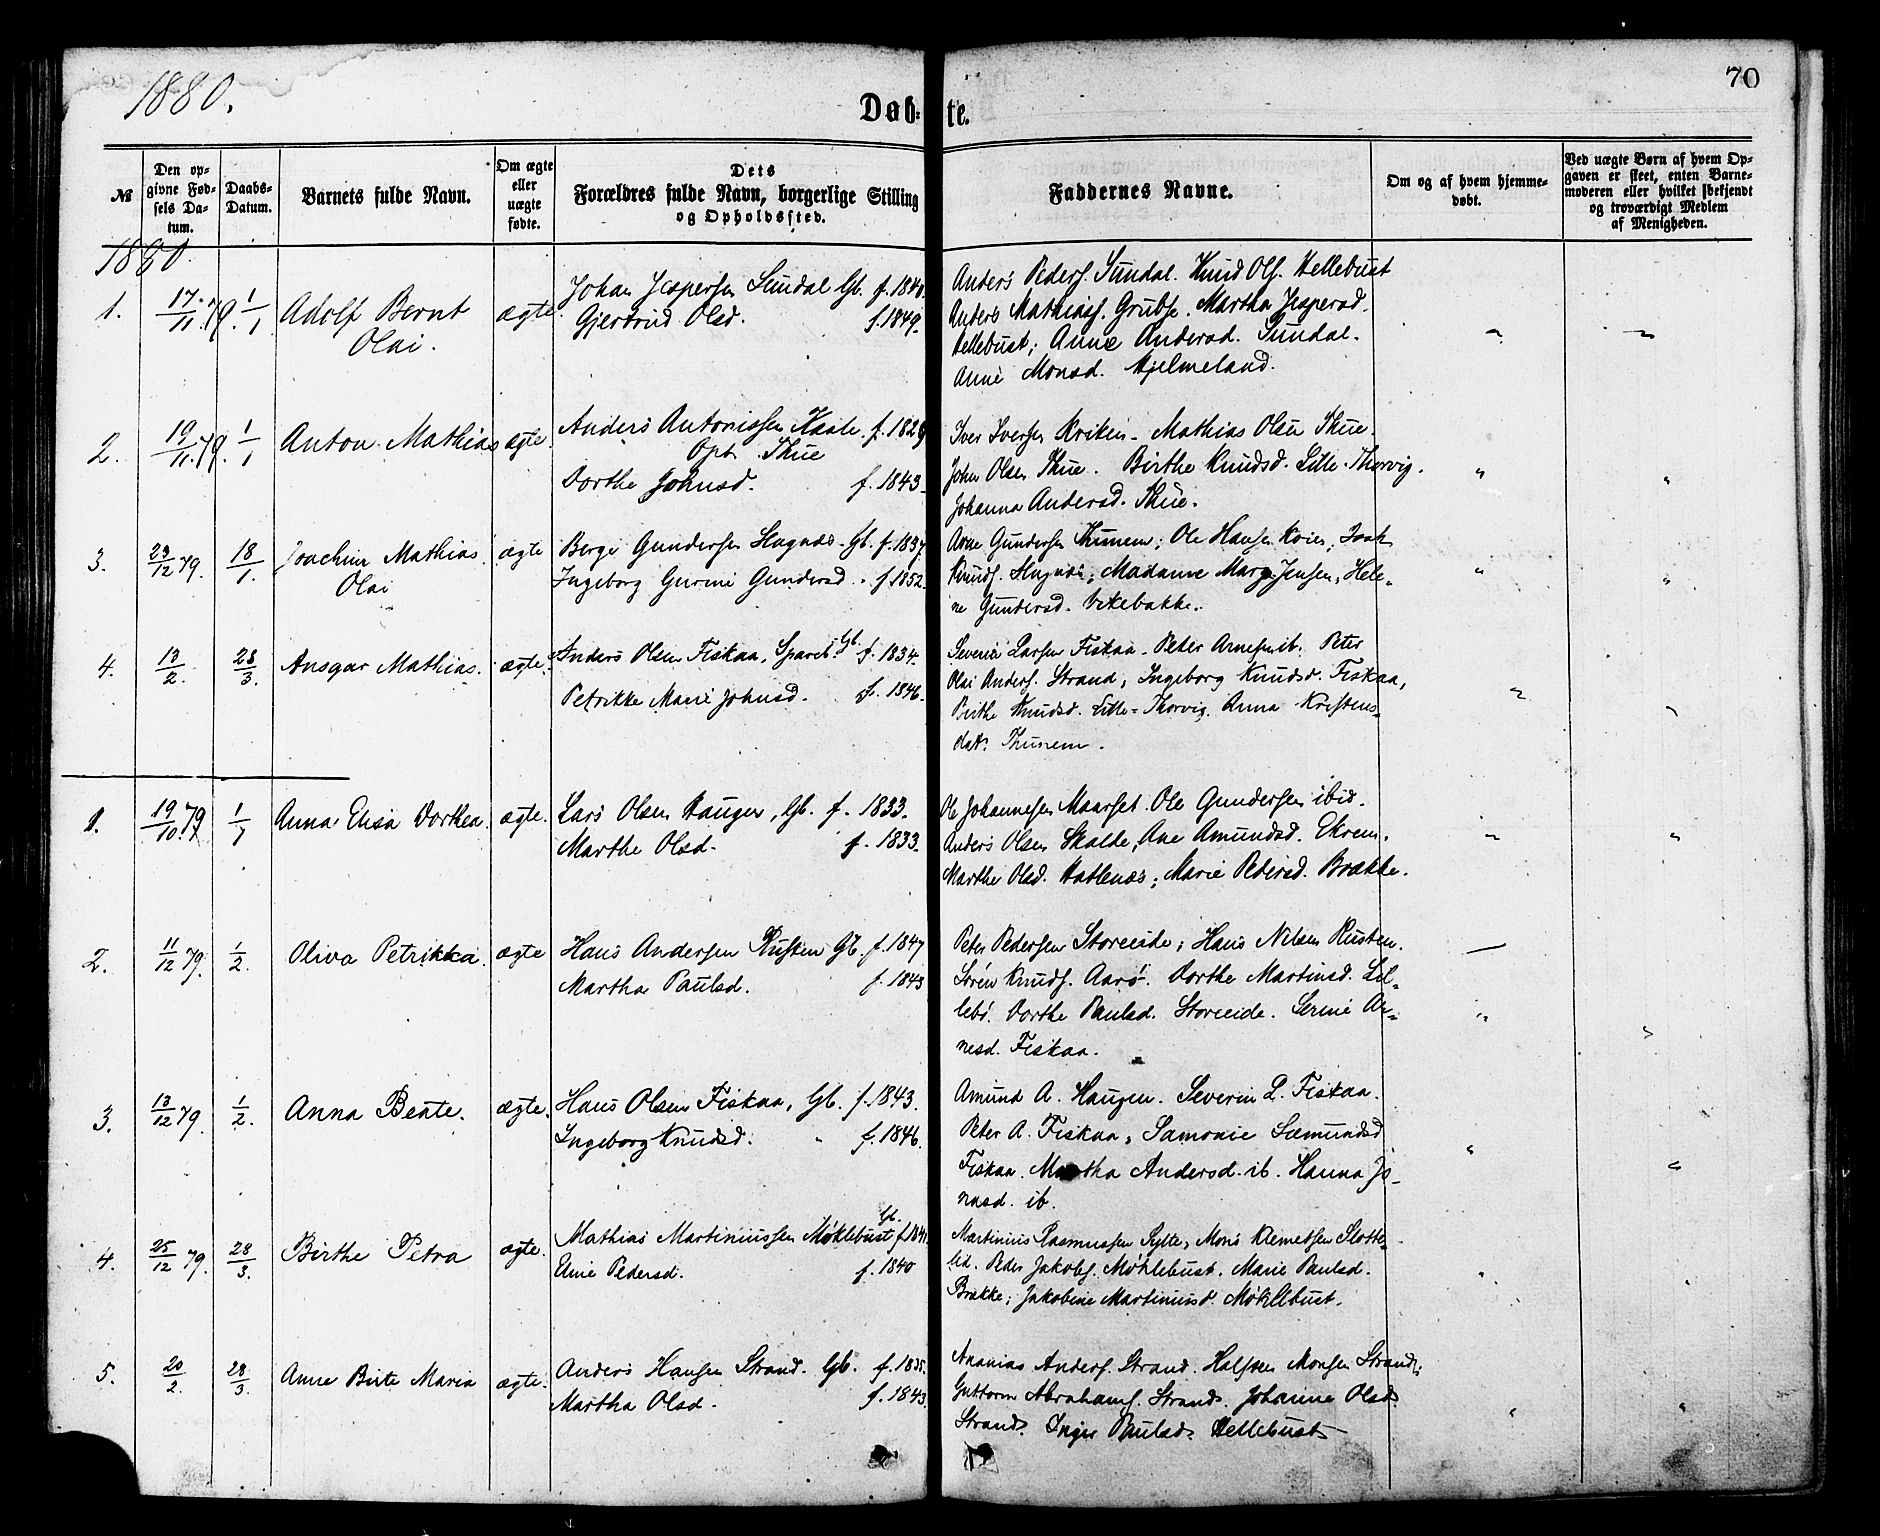 1880.
Døbte.
70
№
Den opgivne Fødsels Datum.
Daabs-Datum.
Barnets fulde Navn.
Om ægte eller uægte fødte.
Dets Forældres fulde Navn, borgerlige Stilling og Opholdssted.
Faddernes Navne.
Om og af hvem hjemmedøbt.
Ved uægte Børn af hvem Opgaven er skeet, enten Barnemoderen eller hvilket bekjendt og troværdigt Medlem af Menigheden.
1880
1. 17/11.79. 1/1 Adolf Bernt
Olai.
ægte
Johan Jespersen Sundal Gb. f. 1840.
Gjertrud Olsd. f. 1849.
Anders Peders. Sundal. Knud Ols. Hellebust
Anders Mathias. Grubse. Martha Jespersd.
Hellebust; Anne Andersd. Sundal.
Anne Monsd. Hjelmeland.
" "
2. 19/11.79. 1/1 Anton Mathias ægte.
Anders Antonissen Kaale. f. 1829
Opt. Thue
Dorthe Johnsd. f. 1843.
Iver Iversen Kriken. Mathias Olsen Thue.
John Olsen Thue. Birthe Knudsd. Lille-Thorvig.
Johanna Andersd. Thue.
" "
3. 23/12 79. 18/1. Joachim Mathias
Olai
ægte
Berge Gundersen Hagnæs. Gb. f. 1837.
Ingeborg Gurine Gundersd. f. 1852.
Arne Gundersen Thunem; Ole Hansen Koien; Isak
Knuds. Hagnæs; Madame Marg. Jensen, Hele-
ne Gundersd. Vikebakke.
" "
4. 13/2. 28/3. Ansgar Mathias. ægte.
Anders Olsen Fiskaa, Gb. f. 1834.
Petrikke Marie Johnsd. f. 1846.
Severin Larsen Fiskaa. Peter Arnesen ib. Peter
Olai Anders. Strand, Ingeborg Knudsd. Fiskaa,
Birthe Knudsd. Lille-Thorvig. Anna Kristens-
dat. Thunem.
" "
1. 19/10.79 1/1 Anna Elisa Dorthea. ægte.
Lars Olsen Haugen, Gb. f. 1833.
Marthe Olsd. f. 1833.
Ole Johannesen Maarset. Ole Gundersen ibid.
Anders Olsen Skalde, Ane Amundsd. Ekrem.
Marthe Olsd. Hatlenæs; Marie Pedersd. Brække.
" "
2. 11/12 79. 1/2. Oliva Petrikka. ægte
Hans Andersen Rusten Gb. f. 1847
Martha Paulsd. f. 1843
Peter Pedersen Storeeide; Hans Nilsen Rusten.
Søren Knuds. Aarø. Dorthe Martinsd. Lil-
lebø. Dorthe Paulsd. Storeeide. Serine Ar-
nesd. Fiskaa.
" "
3. 13/12 79. 1/2. Anna Beate. ægte.
Hans Olsen Fiskaa, Gb. f. 1843.
Ingeborg Knudsd. f. 1846.
Amund A. Haugen. Severin L. Fiskaa.
Peter A. Fiskaa, Samonie Sæmundsd
Fiskaa. Martha Andersd. ib. Hanna Jo-
nasd. ib.
" "
4. 25/12 79. 28/3. Birthe Petra ægte.
Mathias Martiniussen Møklebust Gb. f. 1841.
Elnie Pedersd. f. 1840
Martinius Rasmussen Sylte, Mons Klemetsen Slotte-
lid. Peder Jakobs. Møklebust. Marie Paulsd.
Brække; Jakobine Martiniusd. Møklebust.
" "
5. 20/2. 28/3. Anne Birte Maria ægte.
Anders Hansen Strand. Gb. f. 1835.
Martha Olsd. f. 1843.
Ananias Anders. Strand. Halsten Monsen Strand;
Guttorm Abrahams. Strand. Johanne Olsd.
Strand. Inger Paulsd. Hellebust
" "